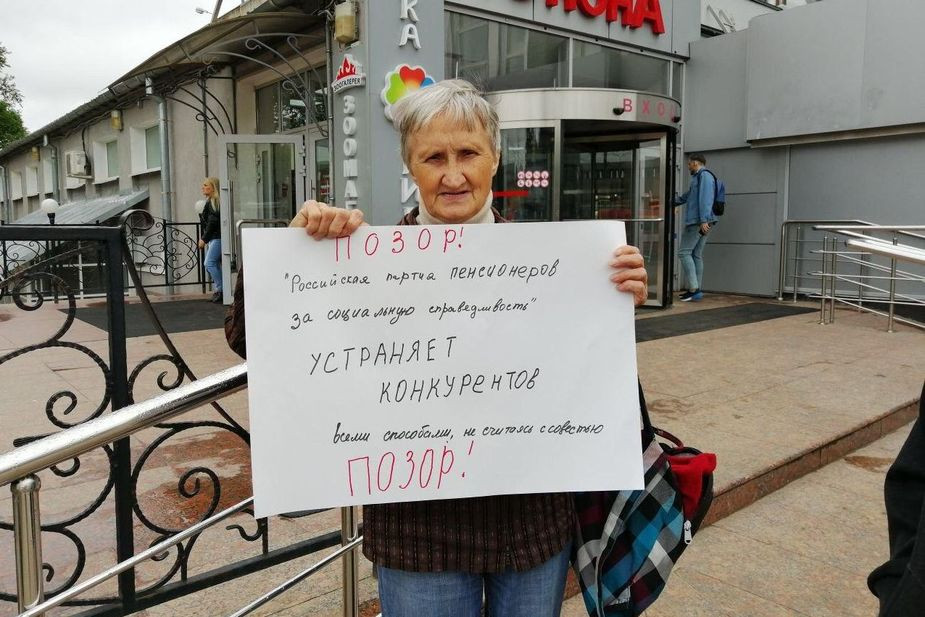 КА
ЗООГАЛЕРЕЯ
ЗООМАГ
ВХОД
ПОЗОР!
"Российская партиа пенсионеров
за социальную справедливость"
УСТРАНЯЕТ
КОНКУРЕНТОВ
всеми способами, не считаясь с совестью
ПОЗОР!